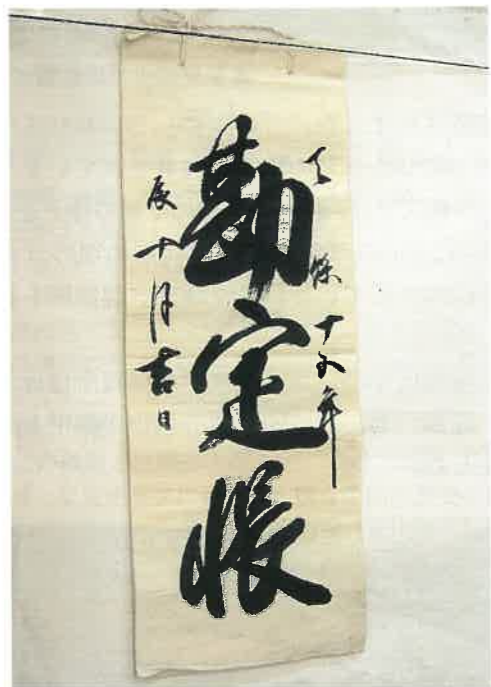 天保十五年
勘定帳
辰十月吉日